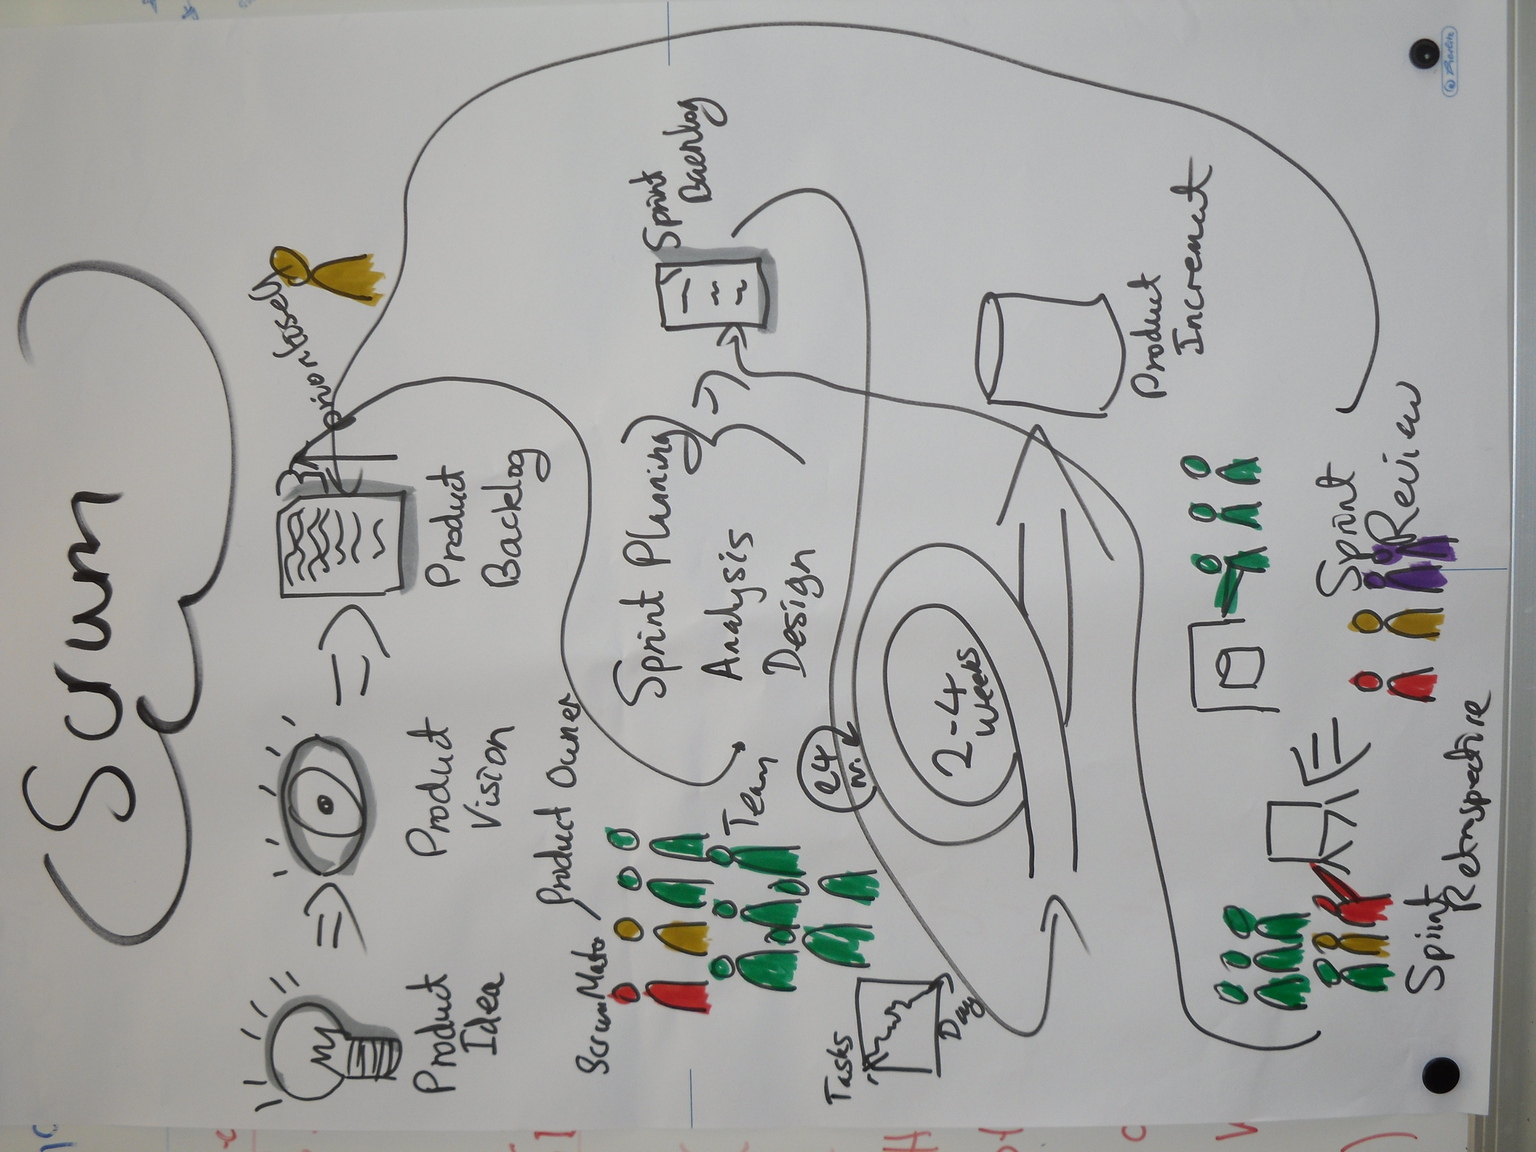 Scrum
Product
Idea
Product
Vision
Product
Backlog
Product Owner
Team
Sprint Planning
Analysis
Design
Sprint
Tasks
Day
2-4
Weeks
Product
Increment
Sprint
Review
Sprint
Retrospective